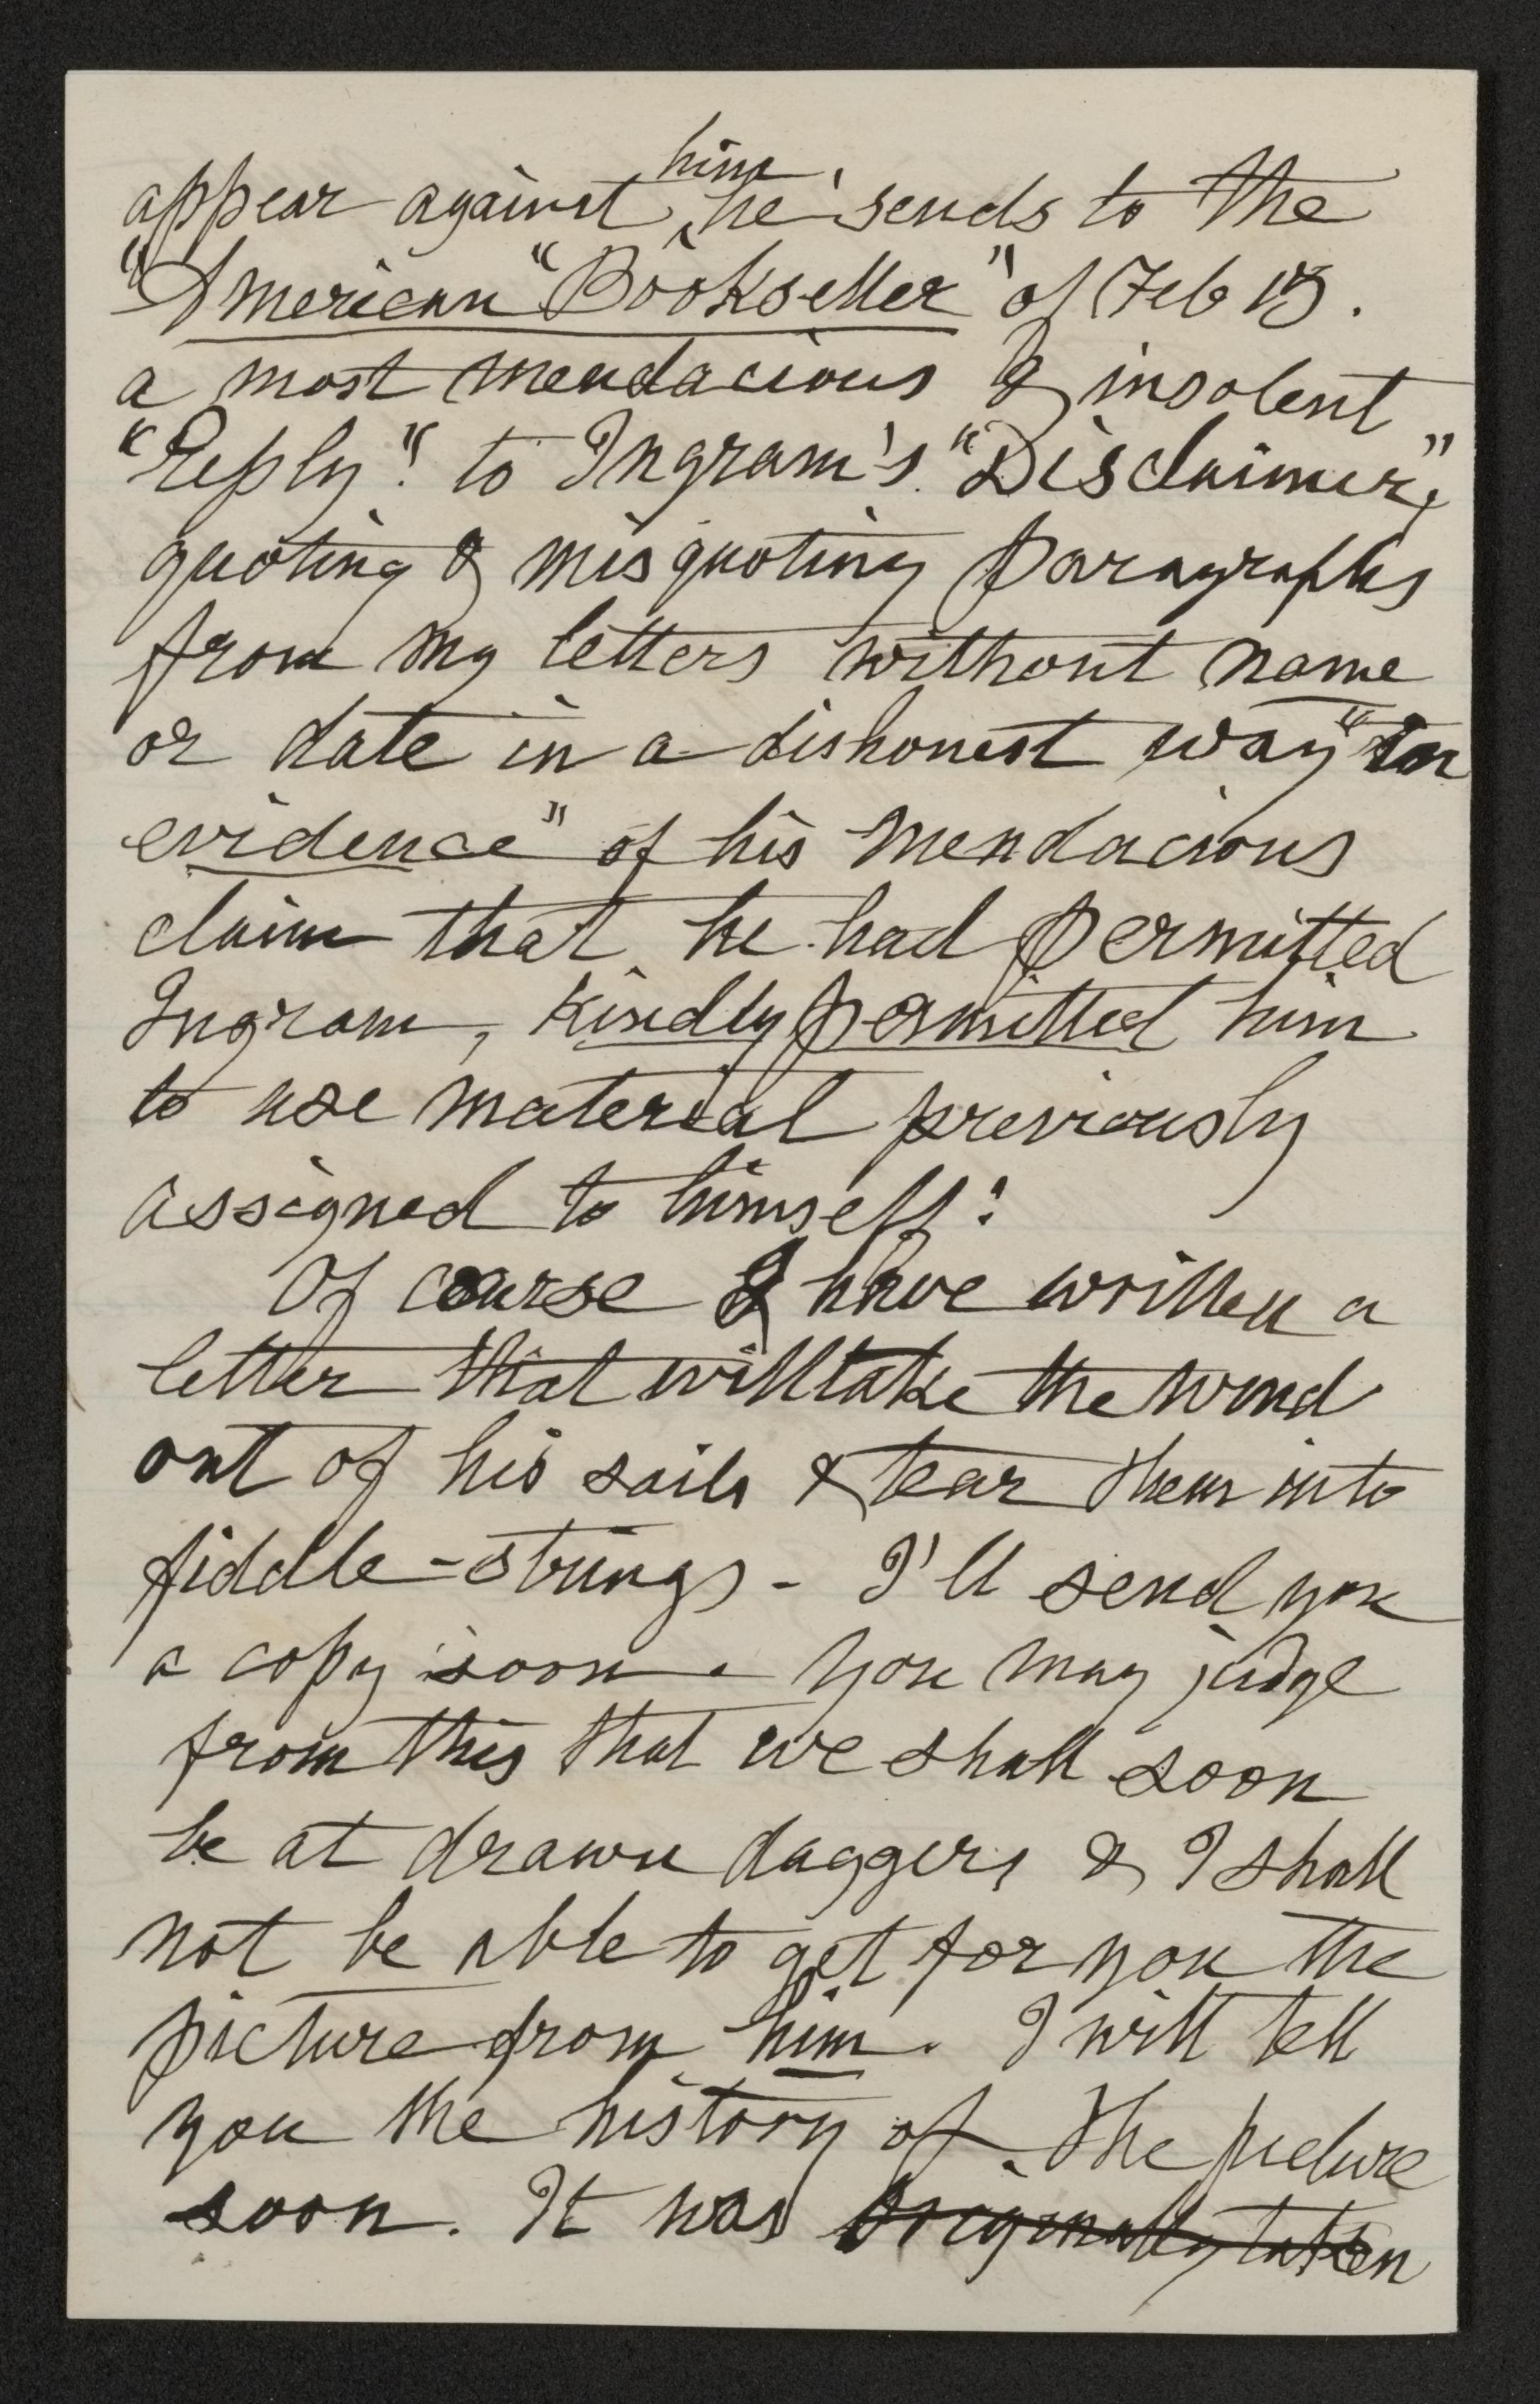 appear against ^him he sends to the
"American "Bookseller" of Feb 15.
a most mendacious & insolent
"Reply". to Ingram's "Disclaimer",
quoting & misquoting paragraphs
from my letters without name
or date in a dishonest way "in
evidence" of his mendacious
claim that he had permitted
Ingram, kindly permitted him
to use material previously
assigned to himself!
Of course I have written a
letter that will take the wind
out of his sails & tear them into
fiddle-strings - I'll send you
a copy soon. You may judge
from this that we shall soon
be at drawn daggers & I shall
not be able to get for you the
picture from him. I will tell
you the history of the picture
soon. It was originally taken